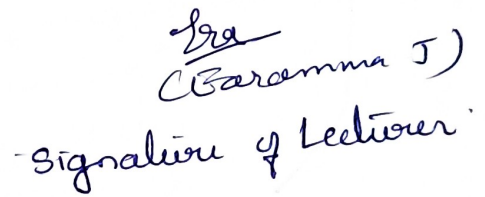 (Earamma J)
Signature of Lecturer.